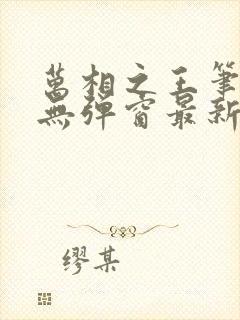 萬相之王筆
無彈窗最新
繆某